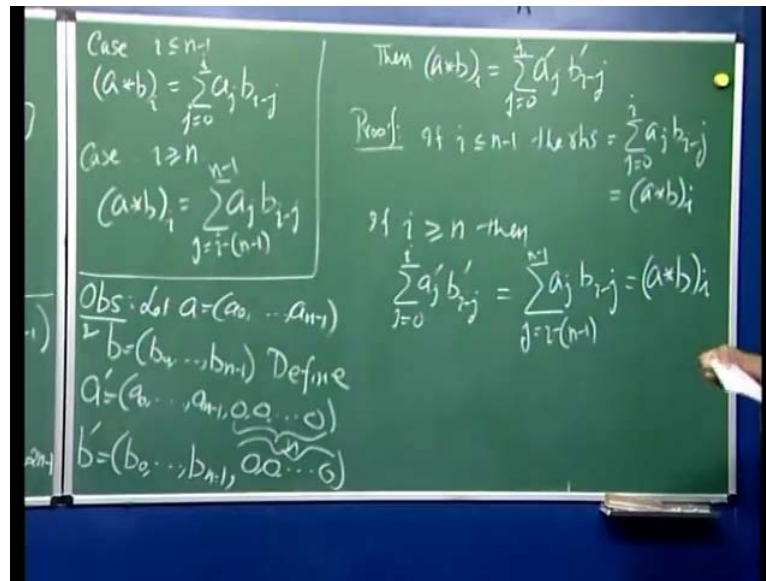 Case i ≤ n-1
(a*b)_i = \sum_{j=0}^{i} a_j b_{i-j}
Case i ≥ n
(a*b)_i = \sum_{j=i-(n-1)}^{n-1} a_j b_{i-j}
Obs: Let a=(a_0, ..., a_{n-1})
2 b=(b_0, ..., b_{n-1}) Define
a'=(a_0, ..., a_{n-1}, 0,0...0)
n
b'=(b_0, ..., b_{n-1}, 0,0...0)
Then (a*b)_i = \sum_{j=0}^{i} a'_j b'_{i-j}
Proof: If i ≤ n-1 the rhs = \sum_{j=0}^{i} a_j b_{i-j}
= (a*b)_i
If i ≥ n then
\sum_{j=0}^{i} a'_j b'_{i-j} = \sum_{j=i-(n-1)}^{n-1} a_j b_{i-j} = (a*b)_i